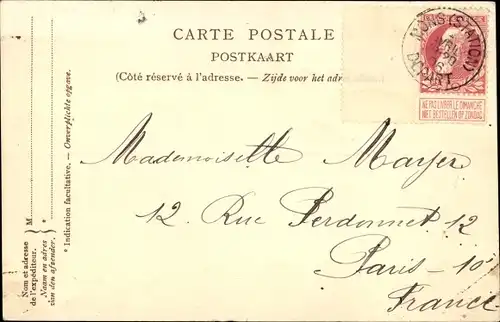 CARTE POSTALE
POSTKAART
(Côté réservé à l'adresse. - Zijde voor het adr
MONS (STATION)
DÉPART
NE PAS LIVRER LE DIMANCHE
NIET BESTELLEN OP ZONDAG
Mademoiselle Mayer
12 Rue Perdonnet 12
Paris - 10
France
* Indication facultative. - Onverplichte opgave.
M
*
Nom et adresse
de l'expéditeur.
Naam en adres
van den afzender.